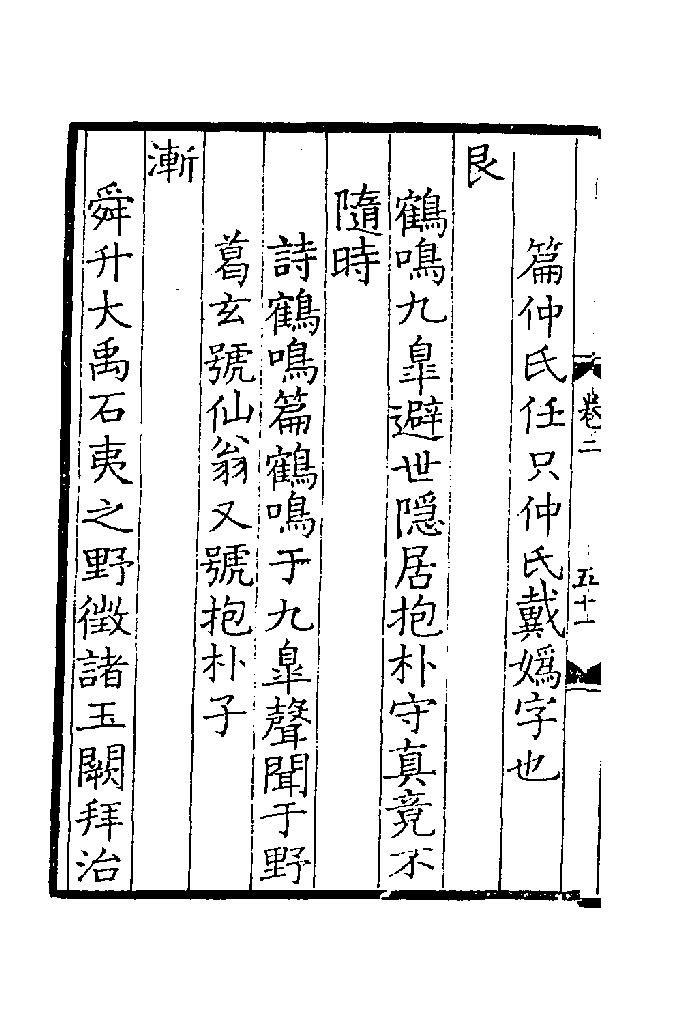 篇仲氏任只仲氏戴嬀字也
艮
鶴鳴九臯避世隱居抱朴守真竟不
隨時
詩鶴鳴篇鶴鳴于九臯聲聞于野
葛玄號仙翁又號抱朴子
漸
舜升大禹石夷之野徵諸玉闕拜治
卷二
五十一